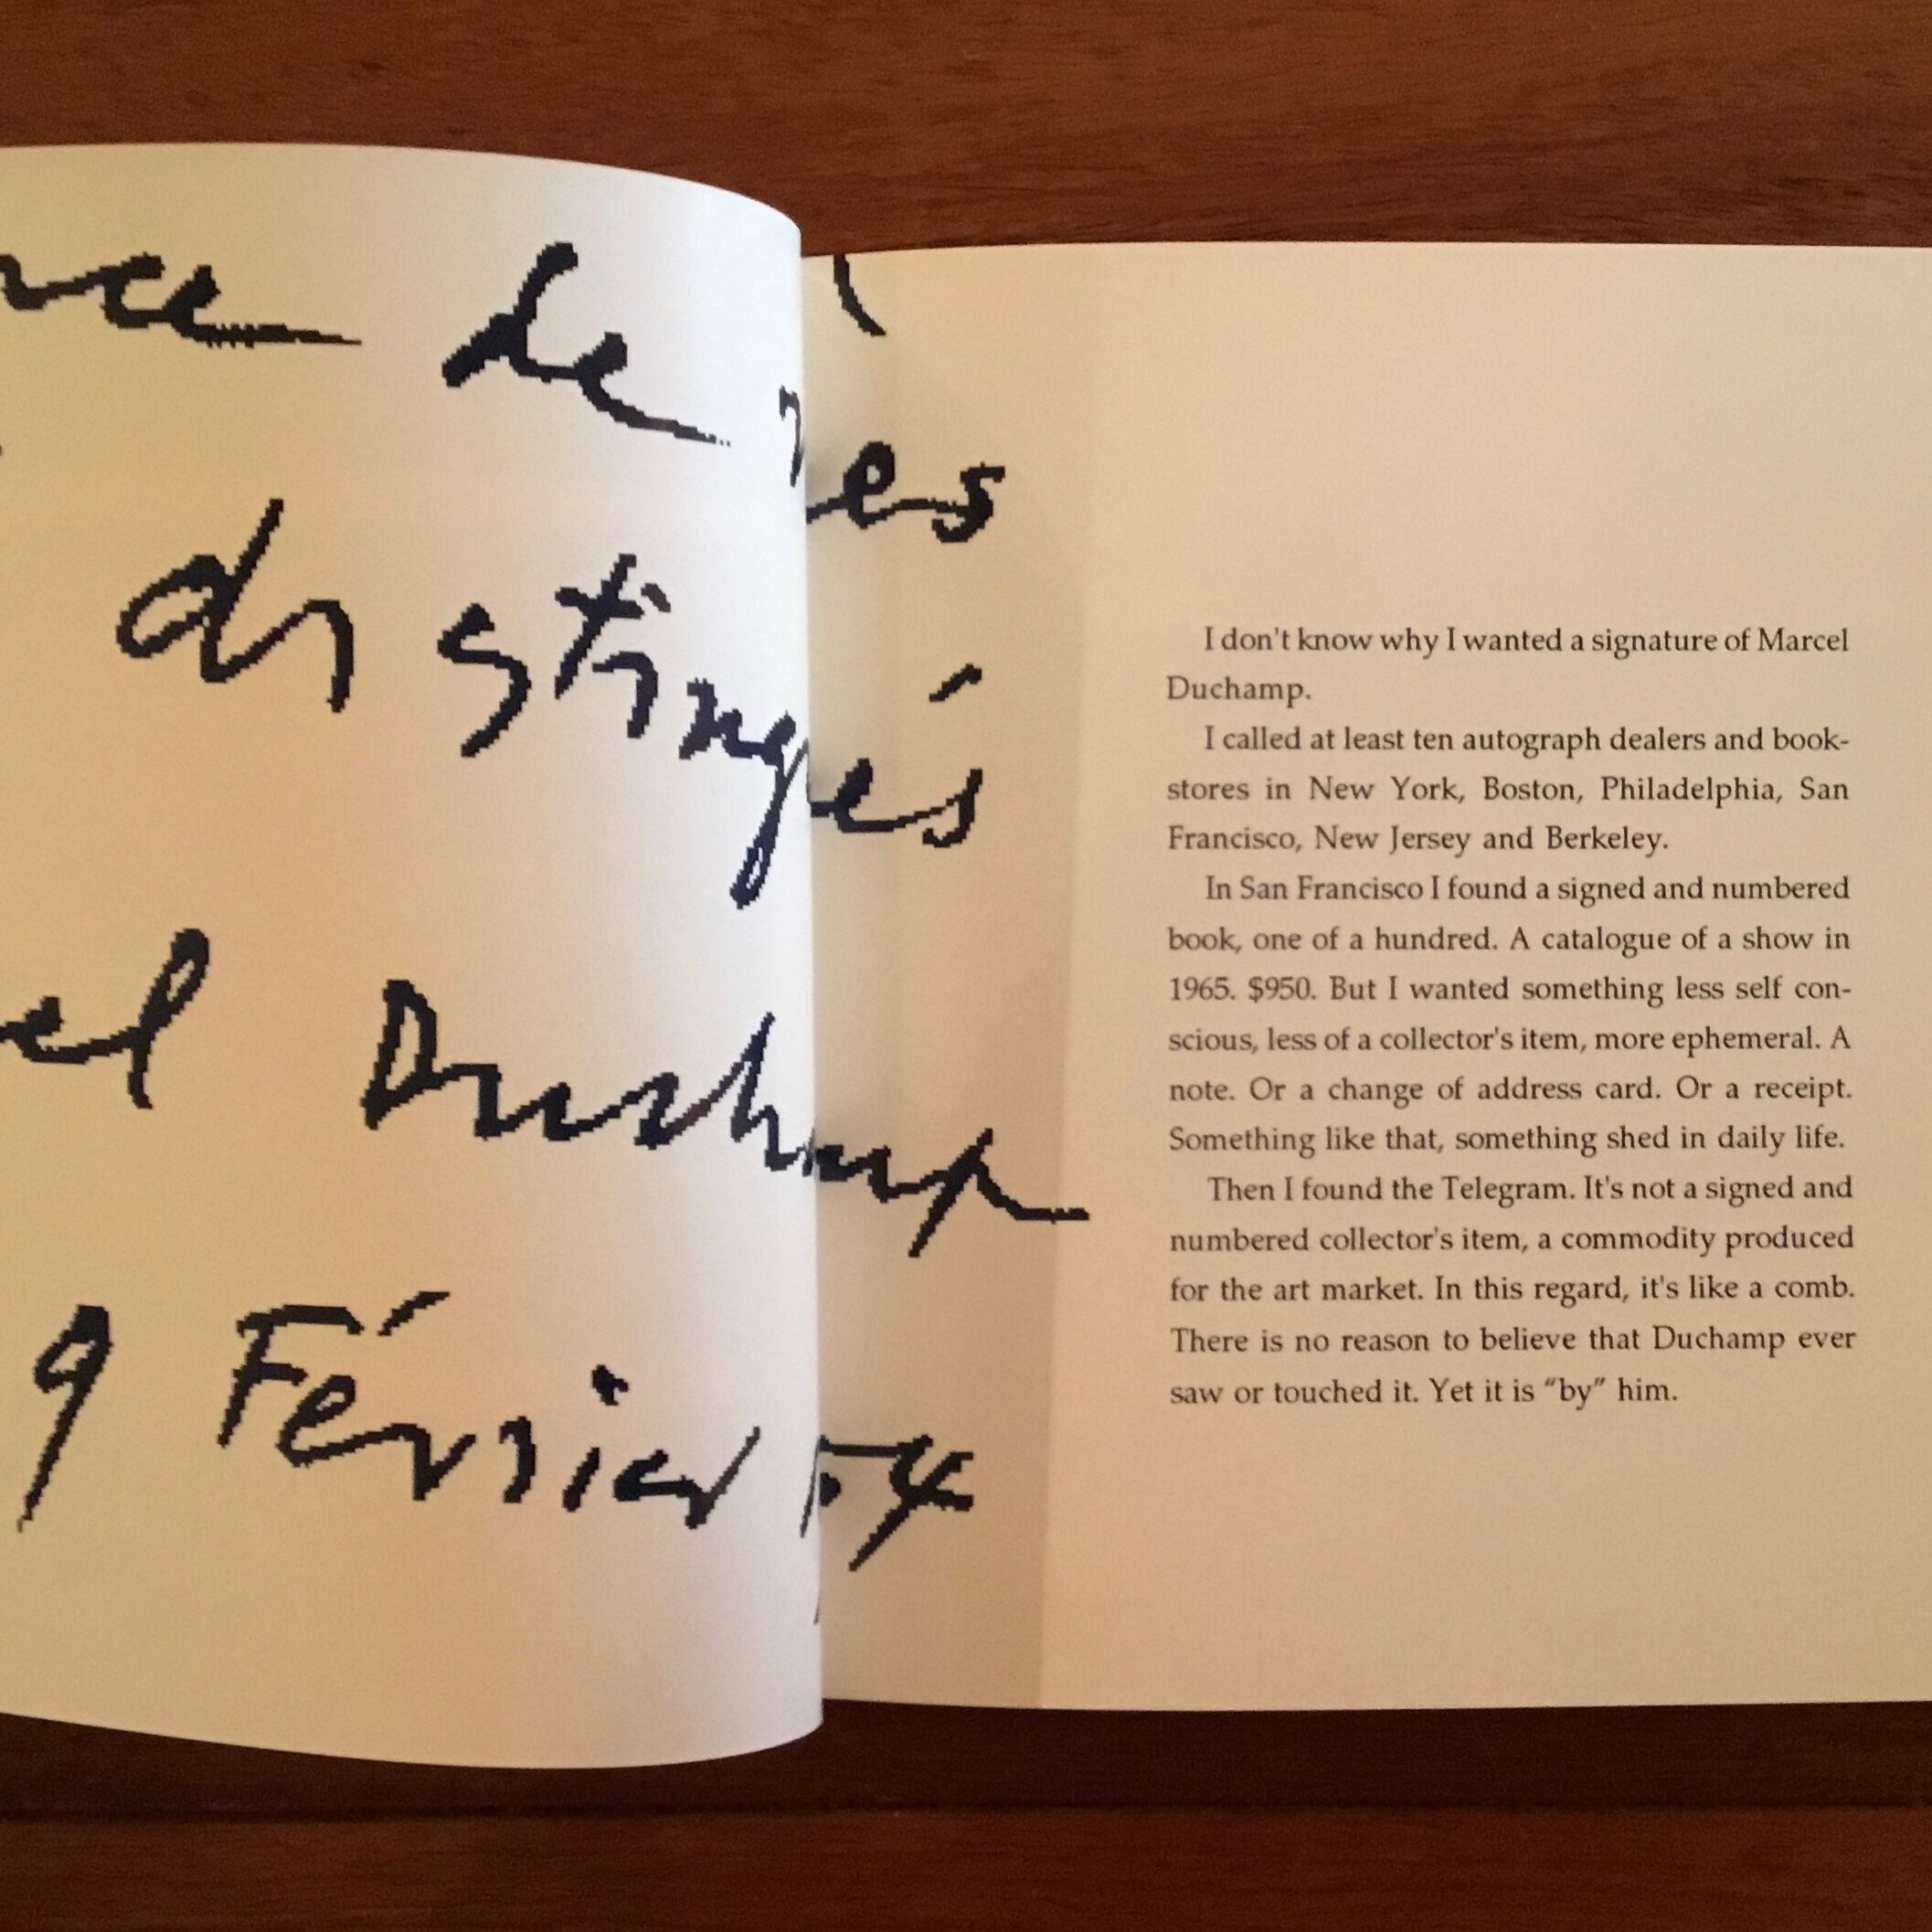 de
distingés
el Duchamp
9 Février 54
I don't know why I wanted a signature of Marcel
Duchamp.
I called at least ten autograph dealers and book-
stores in New York, Boston, Philadelphia, San
Francisco, New Jersey and Berkeley.
In San Francisco I found a signed and numbered
book, one of a hundred. A catalogue of a show in
1965. $950. But I wanted something less self con-
scious, less of a collector's item, more ephemeral. A
note. Or a change of address card. Or a receipt.
Something like that, something shed in daily life.
Then I found the Telegram. It's not a signed and
numbered collector's item, a commodity produced
for the art market. In this regard, it's like a comb.
There is no reason to believe that Duchamp ever
saw or touched it. Yet it is “by” him.